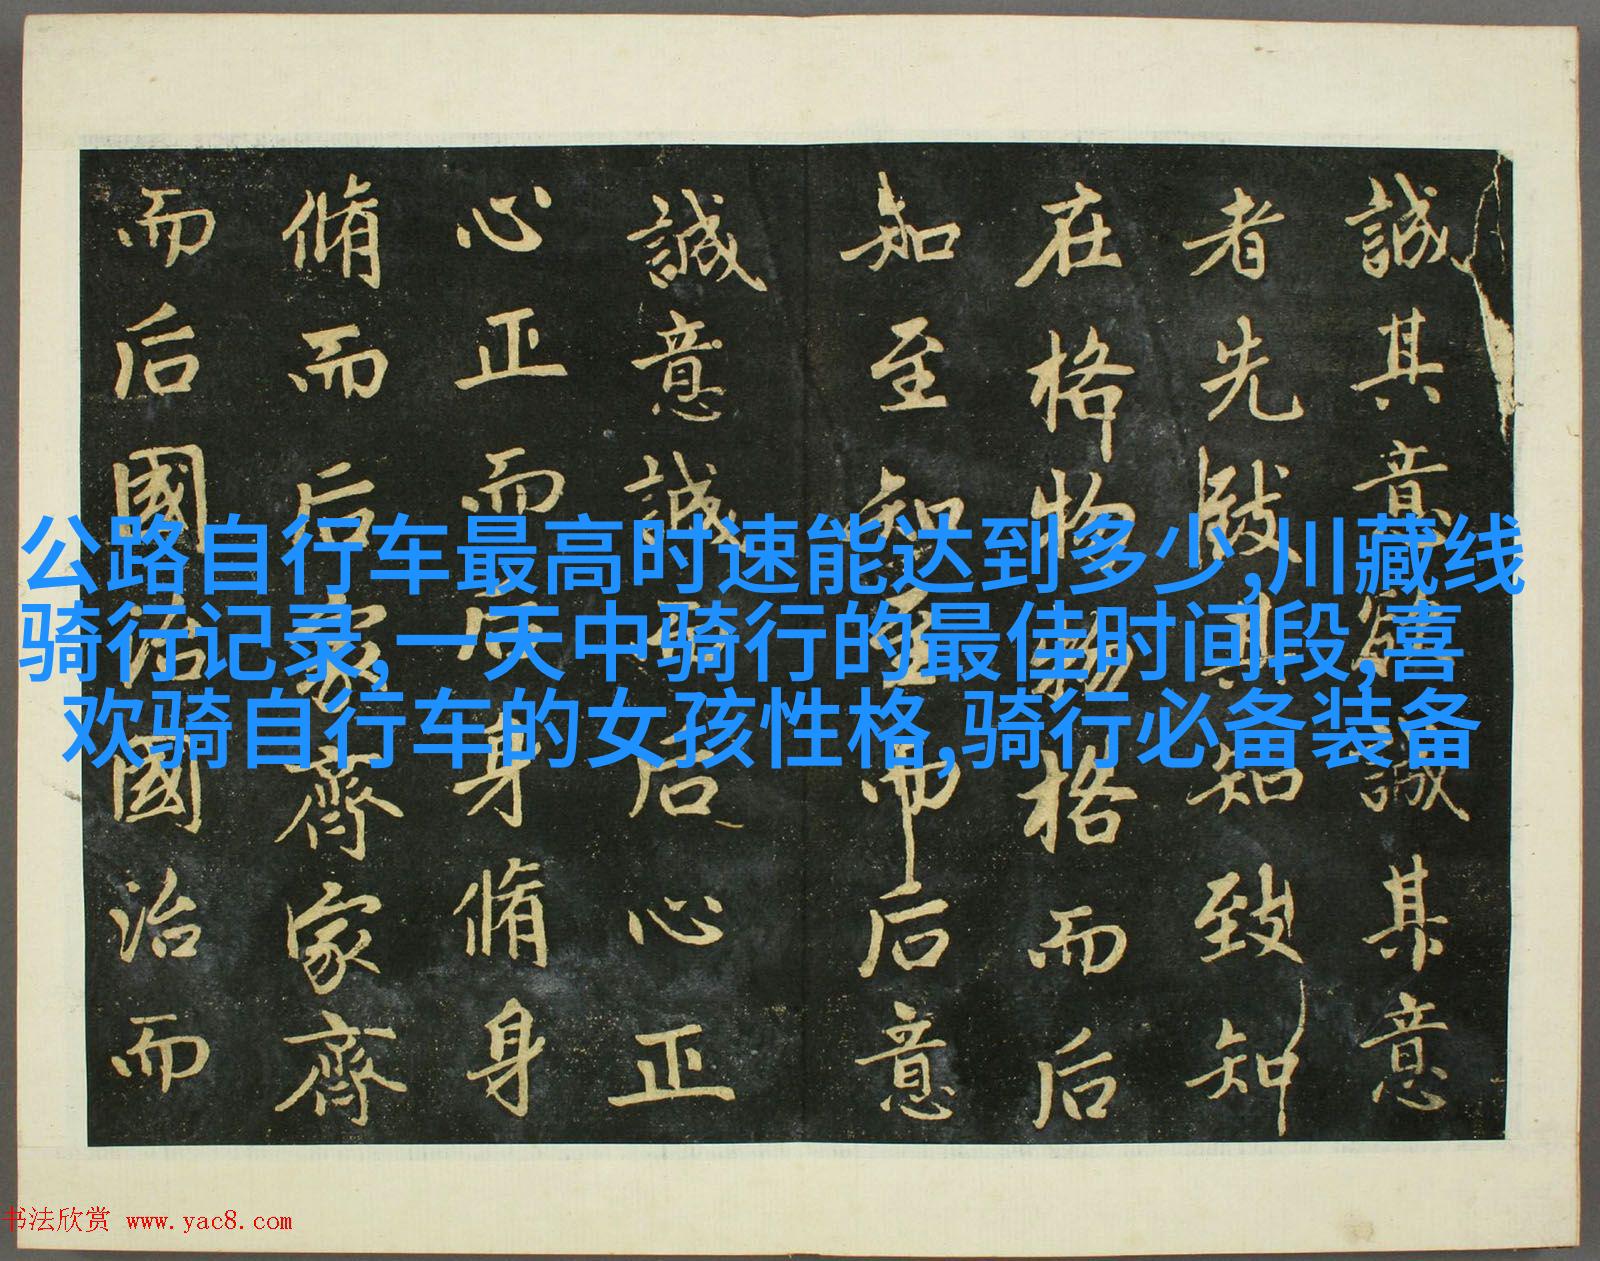 誠其意欲誠其意
者先致其知致知
在格物物格而后
知至知至而后意
誠意誠而后心正
心正而后身脩身
脩而后家齊家齊
而后國治國治而
公路自行车最高时速能达到多少,川藏线
骑行记录,一天中骑行的最佳时间段,喜
欢骑自行车的女孩性格,骑行必备装备
书法欣赏 www.yac8.com